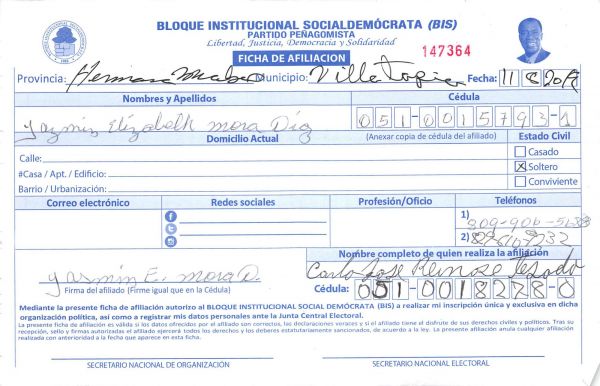 BLOQUE INSTITUCIONAL SOCIALDEMÓCRATA (BIS)
PARTIDO PEÑAGOMISTA
Libertad, Justicia, Democracia y Solidaridad
FICHA DE AFILIACION 147364
Provincia: Hermana Mirabal Municipio: Villa Tapia Fecha: 11 8 2019
Nombres y Apellidos Cédula
Yazmin Elizabelk mora Díaz 051-0015793-1
Domicilio Actual (Anexar copia de cédula del afiliado) Estado Civil
Calle: Casado
#Casa / Apt. / Edificio: X Soltero
Barrio / Urbanización: Conviviente
Correo electrónico Redes sociales Profesión/Oficio Teléfonos
1) 809-906-
2)
Nombre completo de quien realiza la afiliación
yazmin E. mora D. Carlo Jose Reinoso
Firma del afiliado (Firme igual que en la Cédula) Cédula: 051-0018278-0
Mediante la presente ficha de afiliación autorizo al BLOQUE INSTITUCIONAL SOCIAL DEMÓCRATA (BIS) a realizar mi inscripción única y exclusiva en dicha
organización política, así como a registrar mis datos personales ante la Junta Central Electoral.
La presente ficha de afiliación es válida si los datos ofrecidos por el afiliado son correctos, las declaraciones veraces y si el afiliado tiene el disfrute de sus derechos civiles y políticos. Tras su
recepción, sello y firmas autorizadas el afiliado ejercerá todos los derechos y los deberes estatutariamente sancionados, de acuerdo a la ley. La presente afiliación anula cualquier afiliación
realizada con anterioridad a la fecha que aparece en esta ficha.
SECRETARIO NACIONAL DE ORGANIZACIÓN SECRETARIO NACIONAL ELECTORAL